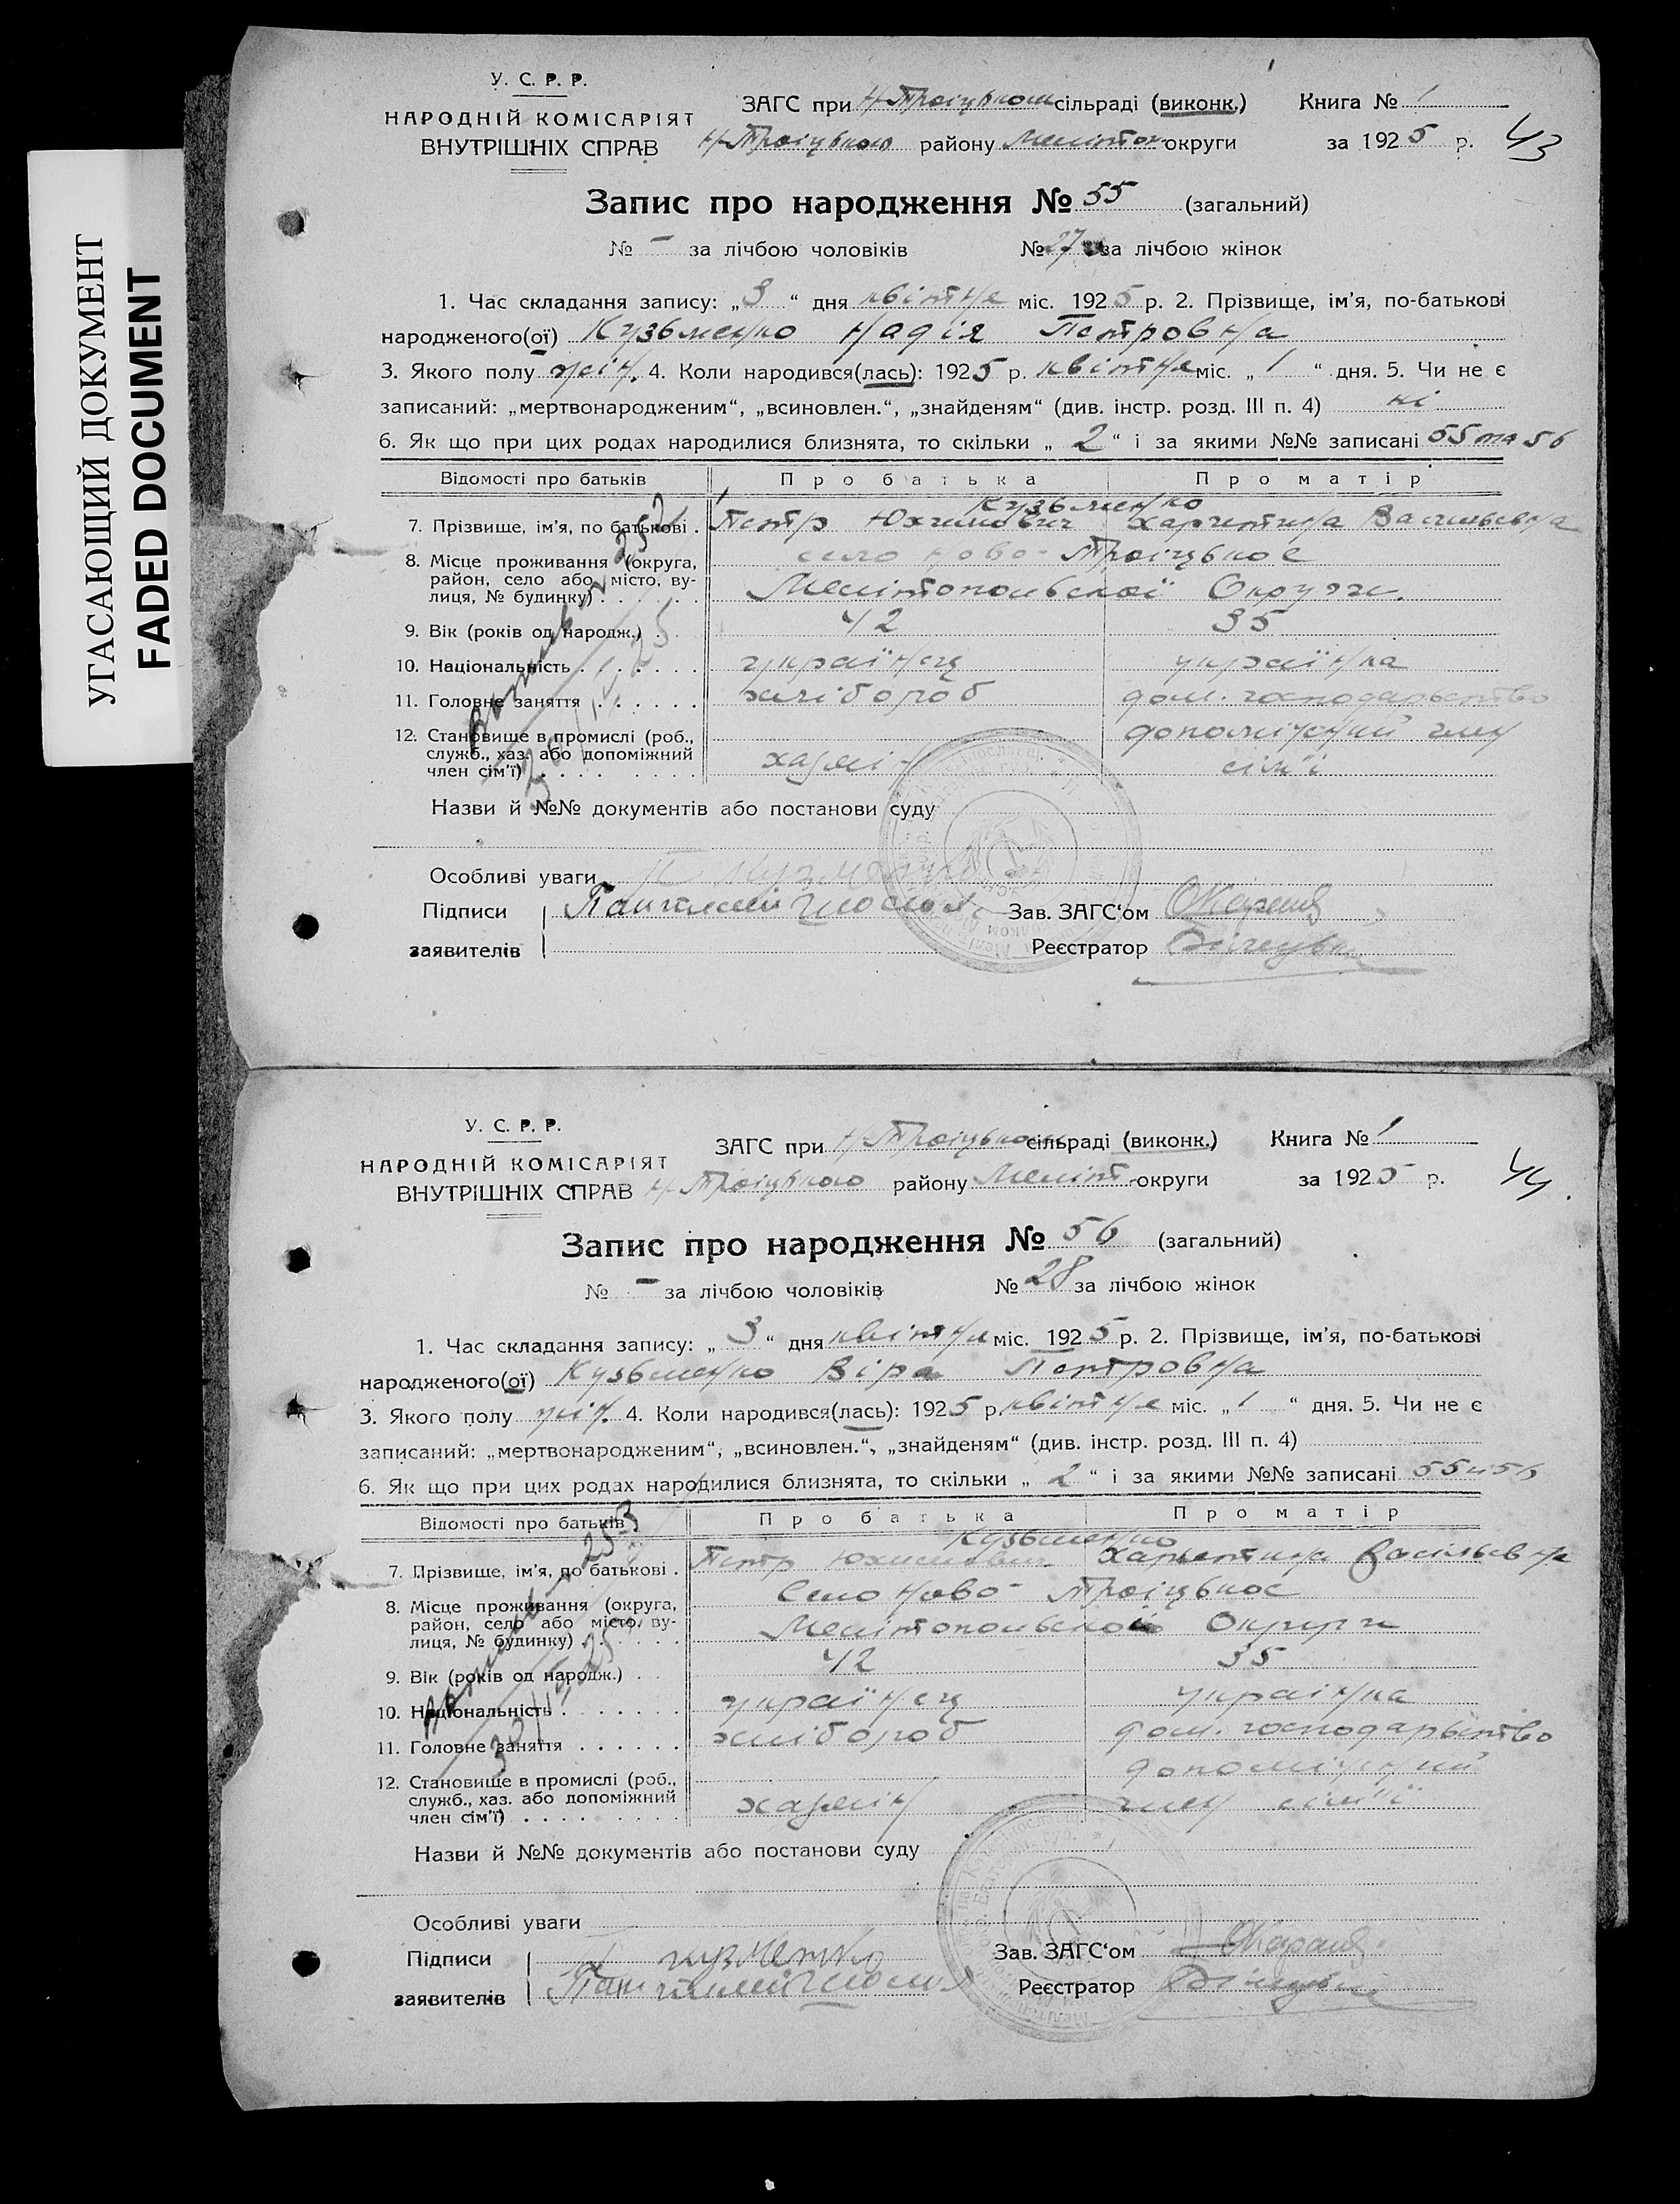 УГАСАЮЩИЙ ДОКУМЕНТ
FADED DOCUMENT
У. С. Р. Р.
НАРОДНІЙ КОМІСАРІЯТ
ВНУТРІШНІХ СПРАВ
ЗАГС при Н-Троіцьком сільраді (виконк.) Книга № 1
Н-Троіцького району Меліттоп округи за 1925 р. 43
Запис про народження № 55 (загальний)
№ – за лічбою чоловіків № 27 за лічбою жінок
1. Час складання запису: „3“ дня квітня міс. 1925 р. 2. Прізвище, ім'я, по-батькові
народженого(ої) Кузьменко Надія Петровна
3. Якого полу жін. 4. Коли народився(лась): 1925 р. квітня міс. „1“ дня. 5. Чи не є
записаний: „мертвонародженим“, „всиновлен.“, „знайденям“ (див. інстр. розд. III п. 4) ні
6. Як що при цих родах народилися близнята, то скільки „2“ і за якими №№ записані 55 та 56
Відомості про батьків Про батька Про матір
Кузьменко
7. Прізвище, ім'я, по батькові . Петр Юхимович Харитина Васильевна
8. Місце проживання (округа, село Ново-Троіцькое
район, село або місто, ву-
лиця, № будинку) . . . . . . Мелітопольскої Округи.
9. Вік (років од народж.) . . 42 35
10. Національність . . . . . . украінец украінка
11. Головне заняття . . . . . . хлібороб дом. господарьство
12. Становище в промислі (роб., допоміжний член
служб., хаз. або допоміжний
член сім'ї) . . . . . . . . . хазяін сім'ї
Назви й №№ документів або постанови суду
Особливі уваги П Кузменко
Підписи Зав. ЗАГС'ом
заявителів Реєстратор
У. С. Р. Р.
НАРОДНІЙ КОМІСАРІЯТ
ВНУТРІШНІХ СПРАВ
ЗАГС при Н-Троіцьком сільраді (виконк.) Книга № 1
Н-Троіцького району Меліт- округи за 1925 р. 44.
Запис про народження № 56 (загальний)
№ – за лічбою чоловіків № 28 за лічбою жінок
1. Час складання запису: „3“ дня квітня міс. 1925 р. 2. Прізвище, ім'я, по-батькові
народженого(ої) Кузьменко Віра Петровна
3. Якого полу жін. 4. Коли народився(лась): 1925 р. квітня міс. „1“ дня. 5. Чи не є
записаний: „мертвонародженим“, „всиновлен.“, „знайденям“ (див. інстр. розд. III п. 4)
6. Як що при цих родах народилися близнята, то скільки „2“ і за якими №№ записані 55 и 56
Відомості про батьків Про батька Про матір
Кузьменко
7. Прізвище, ім'я, по батькові . Петр Юхимович Харитина Васільевна
8. Місце проживання (округа, Село Ново-Троіцькое
район, село або місто, ву-
лиця, № будинку) . . . . . . Мелітопольской Округи
9. Вік (років од народж.) . . 42 35
10. Національність . . . . . . . украінец украінка
11. Головне заняття . . . . . . хлібороб дом. господарьство
12. Становище в промислі (роб., допоміжний
служб., хаз. або допоміжний
член сім'ї) . . . . . . . . . хазяін член сім'ї
Назви й №№ документів або постанови суду
Особливі уваги
Підписи П Кузменко Зав. ЗАГС'ом
заявителів Реєстратор